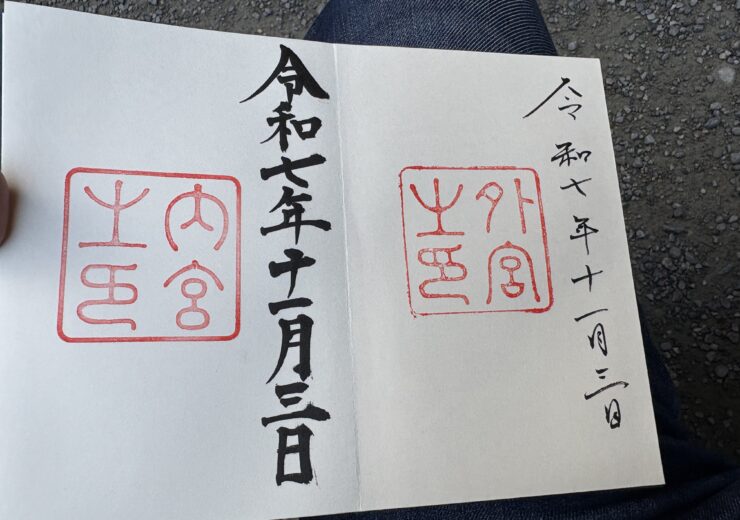 令和七年十一月三日
外宮
之印
令和七年十一月三日
内宮
之印